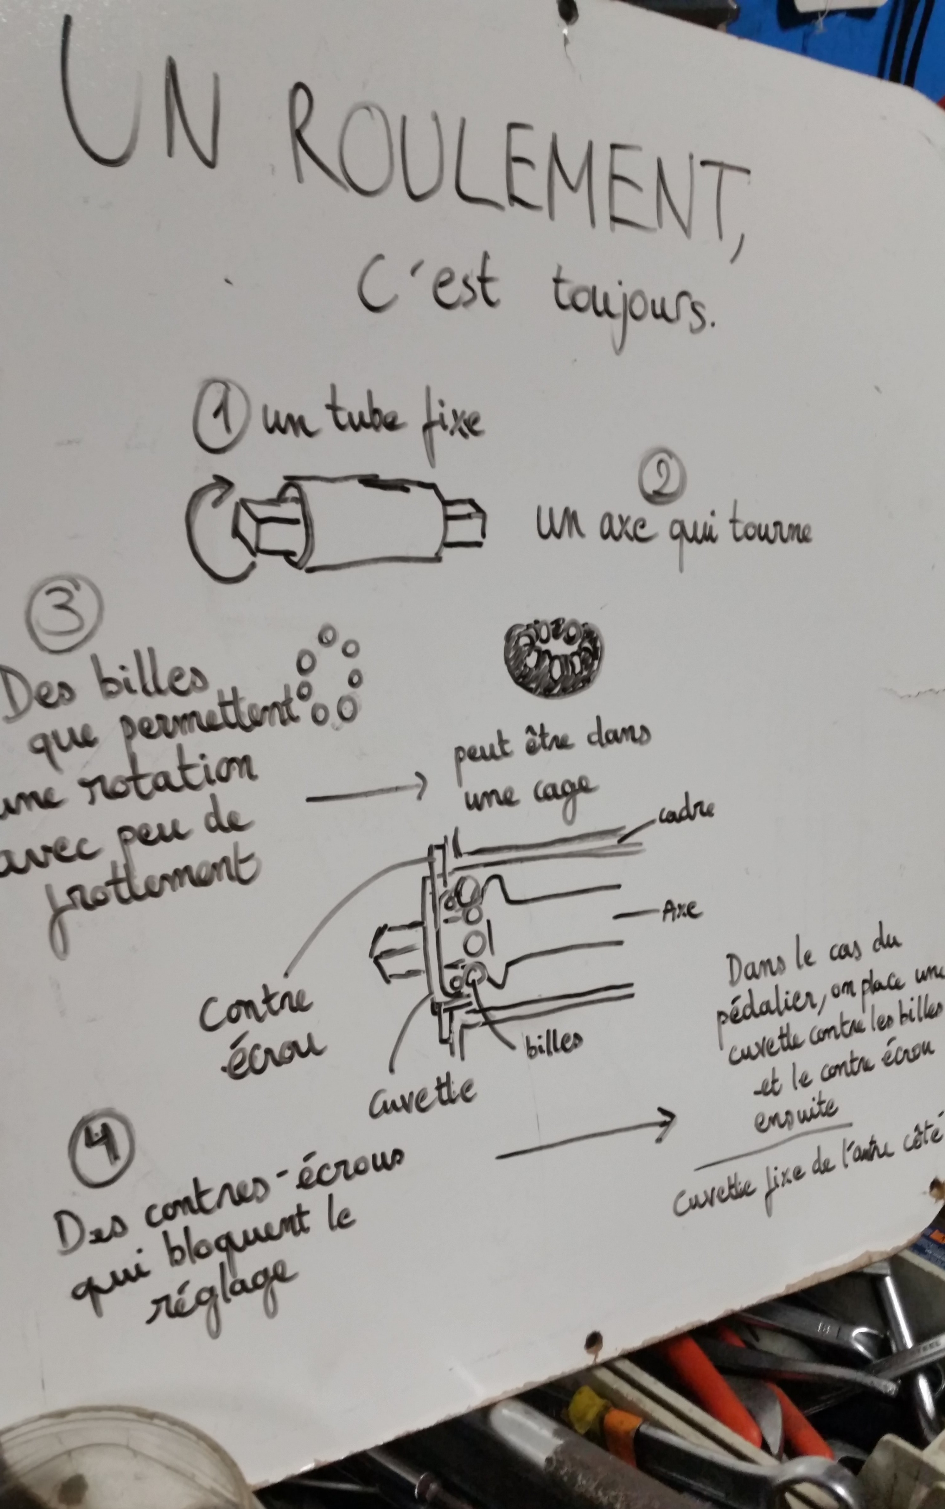 UN ROULEMENT,
c'est toujours.
① un tube fixe
②
un axe qui tourne
③
Des billes
que permettent
une rotation
avec peu de
frottement
peut être dans
une cage
cadre
Axe
Contre
écrou
Cuvette
billes
Dans le cas du
pédalier, on place une
cuvette contre les billes
et le contre écrou
ensuite
Cuvette fixe de l'autre côté
④
Des contres-écrous
qui bloquent le
réglage